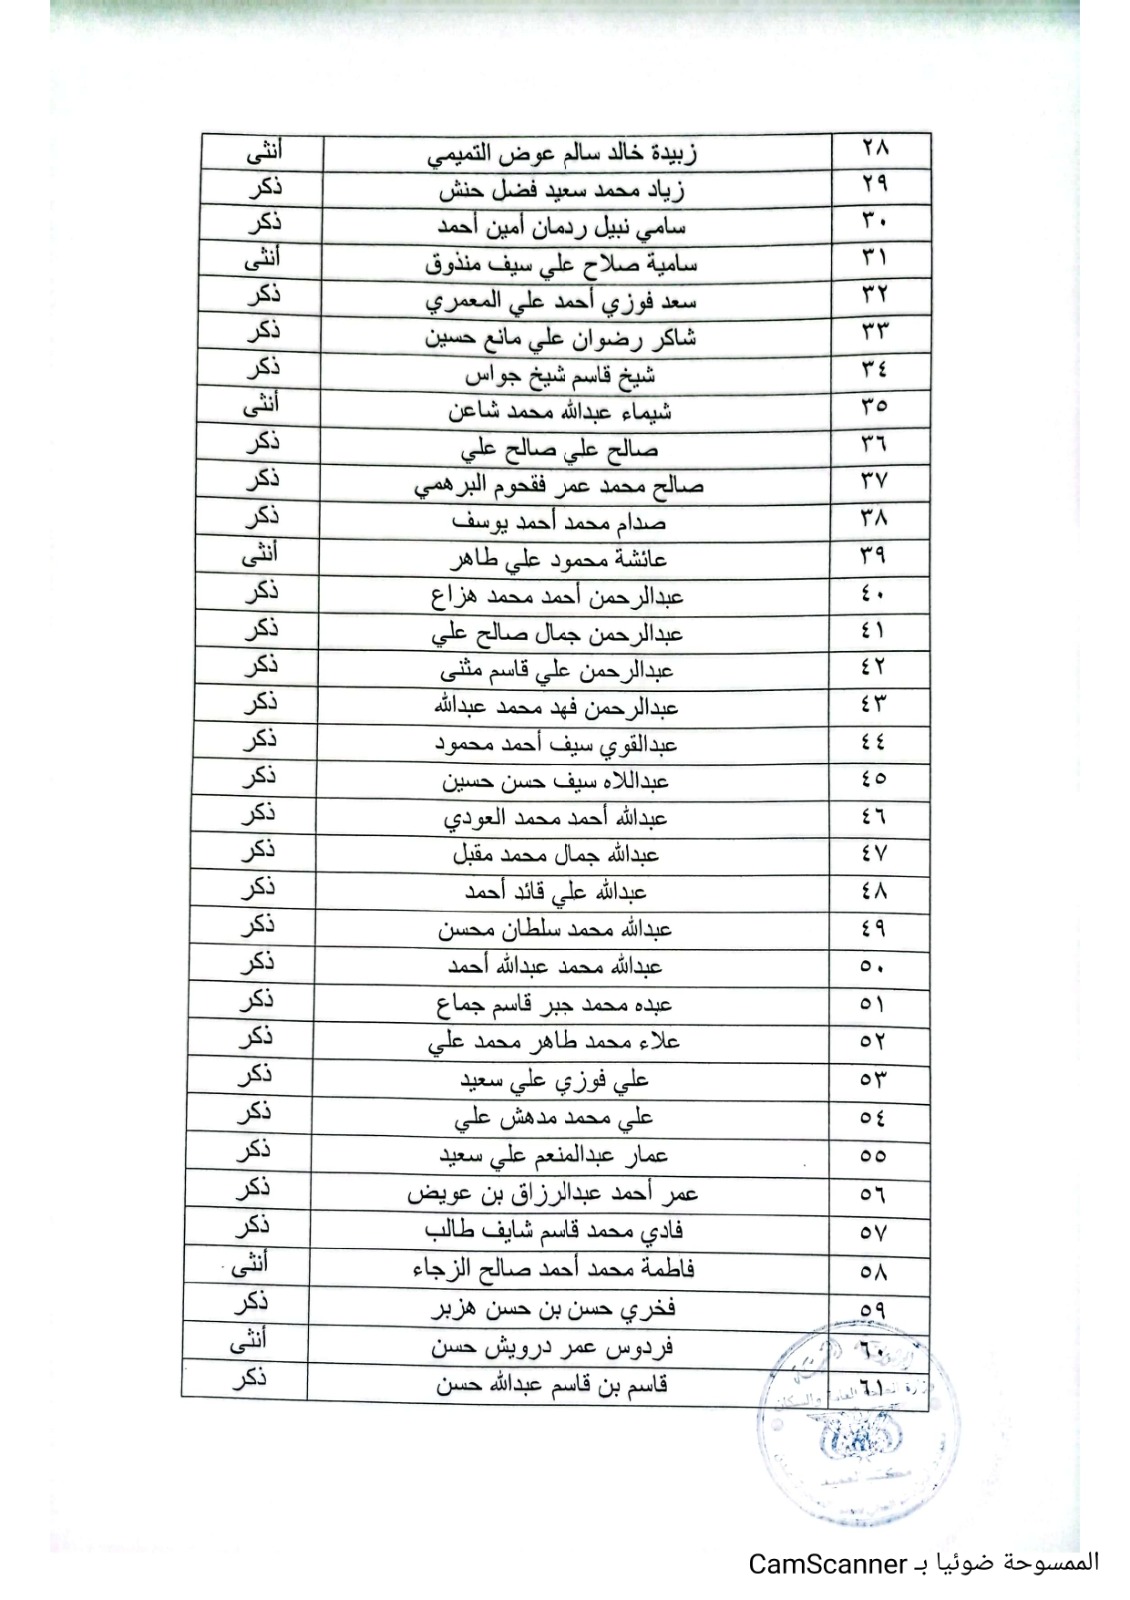 ٢٨ زبيدة خالد سالم عوض التميمي أنثى
٢٩ زياد محمد سعيد فضل حنش ذكر
٣٠ سامي نبيل ردمان أمين أحمد ذكر
٣١ سامية صلاح علي سيف منذوق أنثى
٣٢ سعد فوزي أحمد علي المعمري ذكر
٣٣ شاكر رضوان علي مانع حسين ذكر
٣٤ شيخ قاسم شيخ جواس ذكر
٣٥ شيماء عبدالله محمد شاعن أنثى
٣٦ صالح علي صالح علي ذكر
٣٧ صالح محمد عمر فقحوم البرهمي ذكر
٣٨ صدام محمد أحمد يوسف ذكر
٣٩ عائشة محمود علي طاهر أنثى
٤٠ عبدالرحمن أحمد محمد هزاع ذكر
٤١ عبدالرحمن جمال صالح علي ذكر
٤٢ عبدالرحمن علي قاسم مثنى ذكر
٤٣ عبدالرحمن فهد محمد عبدالله ذكر
٤٤ عبدالقوي سيف أحمد محمود ذكر
٤٥ عبداللاه سيف حسن حسين ذكر
٤٦ عبدالله أحمد محمد العودي ذكر
٤٧ عبدالله جمال محمد مقبل ذكر
٤٨ عبدالله علي قائد أحمد ذكر
٤٩ عبدالله محمد سلطان محسن ذكر
٥٠ عبدالله محمد عبدالله أحمد ذكر
٥١ عبده محمد جبر قاسم جماع ذكر
٥٢ علاء محمد طاهر محمد علي ذكر
٥٣ علي فوزي علي سعيد ذكر
٥٤ علي محمد مدهش علي ذكر
٥٥ عمار عبدالمنعم علي سعيد ذكر
٥٦ عمر أحمد عبدالرزاق بن عويض ذكر
٥٧ فادي محمد قاسم شايف طالب ذكر
٥٨ فاطمة محمد أحمد صالح الزجاء أنثى
٥٩ فخري حسن بن حسن هزبر ذكر
٦٠ فردوس عمر درويش حسن أنثى
٦١ قاسم بن قاسم عبدالله حسن ذكر
الممسوحة ضوئيا بـ CamScanner